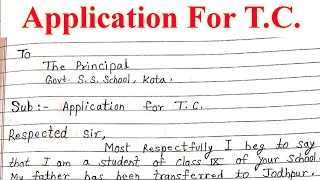 Application For T.C.
To
The Principal
Govt. S. S. School, Kota.
Sub:- Application for T.C.
Respected Sir,
Most Respectfully I beg to say
that I am a student of class IX of your School.
My father has been transferred to Jodhpur.